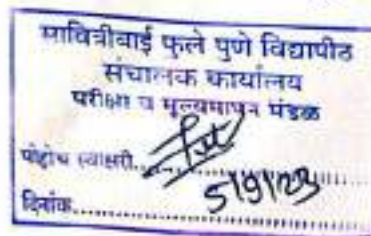 सावित्रीबाई फुले पुणे विद्यापीठ
संचालक कार्यालय
परीक्षा व मूल्यमापन मंडळ
पोहोच स्वाक्षरी..............
दिनांक.............. 5/9/23